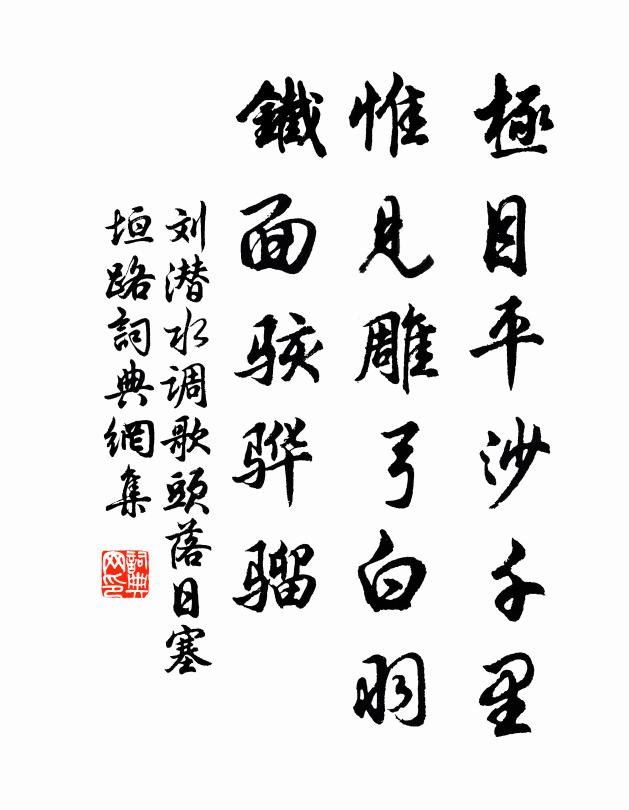 極目平沙千里
惟見雕弓白羽
鐵面駭骅骝
刘潜水调歌頭落日塞
垣路詞典網集
詞典
网印